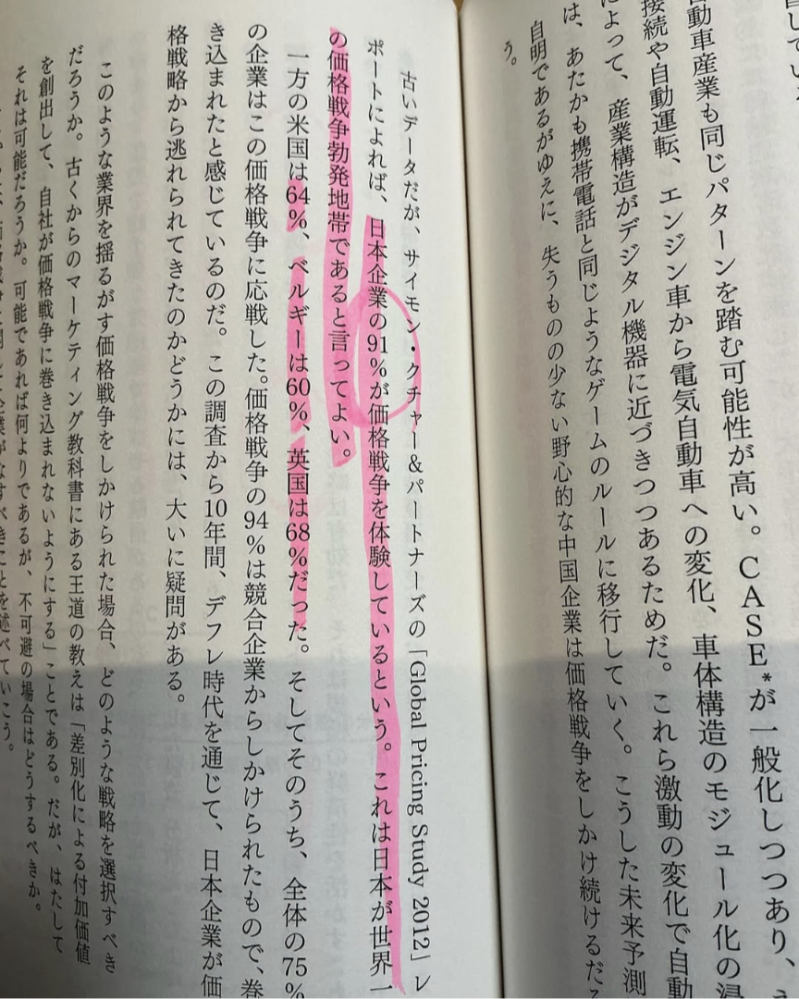 している
自動車産業も同じパターンを踏む可能性が高い。CASE*が一般化しつつあり、
接続や自動運転、エンジン車から電気自動車への変化、車体構造のモジュール化の浸
によって、産業構造がデジタル機器に近づきつつあるためだ。これら激動の変化で自動
は、あたかも携帯電話と同じようなゲームのルールに移行していく。こうした未来予測
自明であるがゆえに、失うものの少ない野心的な中国企業は価格戦争をしかけ続けるだろ
う。
古いデータだが、サイモン・クチャー&パートナーズの「Global Pricing Study 2012」レ
ポートによれば、日本企業の91%が価格戦争を体験しているという。これは日本が世界一
の価格戦争勃発地帯であると言ってよい。
一方の米国は64%、ベルギーは60%、英国は68%だった。そしてそのうち、全体の75%
の企業はこの価格戦争に応戦した。価格戦争の94%は競合企業からしかけられたもので、巻
き込まれたと感じているのだ。この調査から10年間、デフレ時代を通じて、日本企業が価
格戦略から逃れられてきたのかどうかには、大いに疑問がある。
このような業界を揺るがす価格戦争をしかけられた場合、どのような戦略を選択すべき
だろうか。古くからのマーケティング教科書にある王道の教えは「差別化による付加価値
を創出して、自社が価格戦争に巻き込まれないようにする」ことである。だが、はたして
それは可能だろうか。可能であれば何よりであるが、不可避の場合はどうするべきか。
企業がなすべきことを述べていこう。